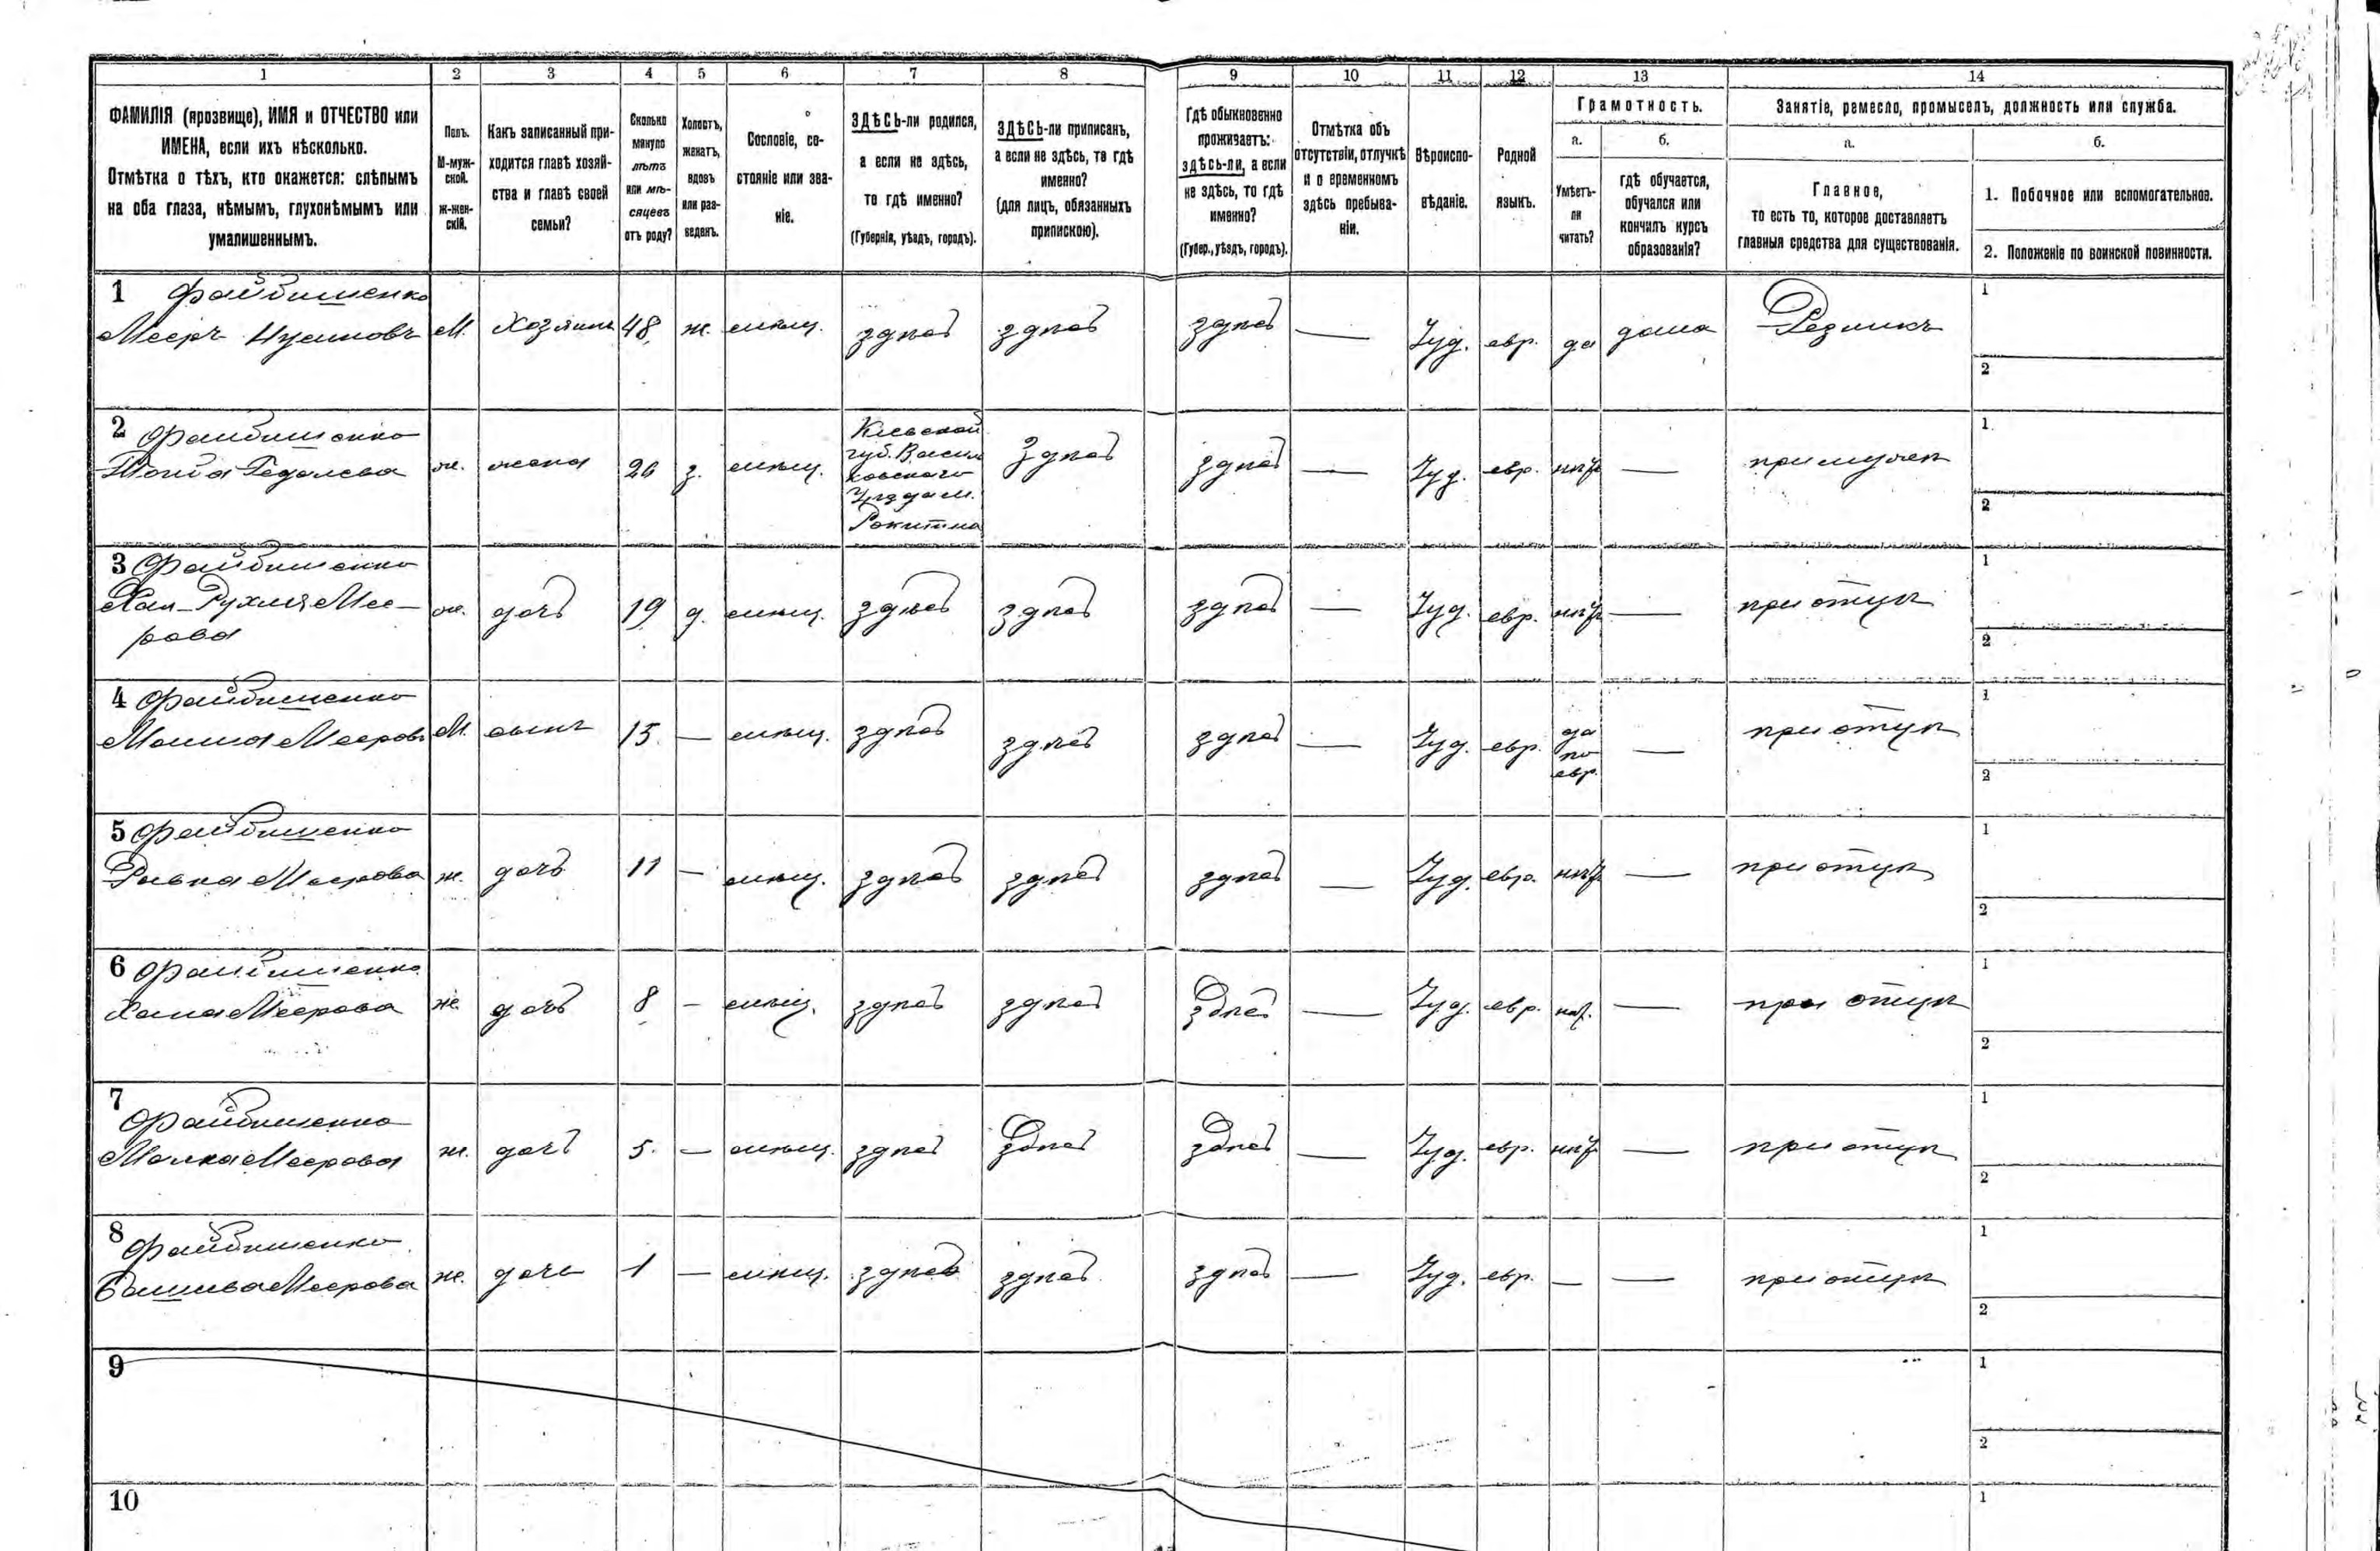 1 2 3 4 5 6 7 8 9 10 11 12 13 14
ФАМИЛІЯ (прозвище), ИМЯ и ОТЧЕСТВО или
ИМЕНА, если ихъ нѣсколько.
Отмѣтка о тѣхъ, кто окажется: слѣпымъ
на оба глаза, нѣмымъ, глухонѣмымъ или
умалишеннымъ.
Полъ.
М-муж-
ской.
ж-жен-
скій.
Какъ записанный при-
ходится главѣ хозяй-
ства и главѣ своей
семьи?
Сколько
минуло
лѣтъ
или мѣ-
сяцевъ
отъ роду?
Холостъ,
женатъ,
вдовъ
или раз-
веденъ.
Сословіе, со-
стояніе или зва-
ніе.
ЗДѢСЬ-ли родился,
а если не здѣсь,
то гдѣ именно?
(Губернія, уѣздъ, городъ).
ЗДѢСЬ-ли приписанъ,
а если не здѣсь, то гдѣ
именно?
(для лицъ, обязанныхъ
припискою).
Гдѣ обыкновенно
проживаетъ:
здѣсь-ли, а если
не здѣсь, то гдѣ
именно?
(Губер., уѣздъ, городъ).
Отмѣтка объ
отсутствіи, отлучкѣ
и о временномъ
здѣсь пребыва-
ніи.
Вѣроиспо-
вѣданіе.
Родной
языкъ.
Грамотность.
а.
Умѣетъ-
ли
читать?
б.
гдѣ обучается,
обучался или
кончилъ курсъ
образованія?
Занятіе, ремесло, промыселъ, должность или служба.
а.
Главное,
то есть то, которое доставляетъ
главныя средства для существованія.
б.
1. Побочное или вспомогательное.
2. Положеніе по воинской повинности.
1 Файбишенко
Мееръ Нусиновъ М. Хозяинъ 48 ж. мѣщ. здѣсь здѣсь здѣсь — Іуд. евр. да дома Резникъ
1
2
2 Файбишенко
Гедалева ж. жена з. мѣщ.
Кіевской
губ. Васил
ковского
Уѣзда м.
Рокитна
здѣсь здѣсь — Іуд. евр. нѣтъ — при мужѣ
1
2
3 Файбишенко
Хая-Рухля Мее-
рова
ж. дочь 19 д. мѣщ. здѣсь здѣсь здѣсь — Іуд. евр. нѣтъ — при отцѣ
1
2
4 Файбишенко
Мошка Мееровъ М. сынъ 15. — мѣщ. здѣсь здѣсь здѣсь — Іуд. евр.
да
по
евр.
— при отцѣ
1
2
5 Файбишенко
Ривка Меерова ж. дочь 11 — мѣщ. здѣсь здѣсь здѣсь — Іуд. евр. нѣтъ — при отцѣ
1
2
6 Файбишенко
Хана Меерова ж. дочь 8 — мѣщ. здѣсь здѣсь здѣсь — Іуд. евр. нѣт. — при отцѣ
1
2
7
Файбишенко
Малка Меерова ж. дочь 5. — мѣщ. здѣсь здѣсь здѣсь — Іуд. евр. нѣтъ — при отцѣ
1
2
8
Файбишенко
Башива Меерова ж. дочь 1 — мѣщ. здѣсь здѣсь здѣсь — Іуд. евр. — — при отцѣ
1
2
9
1
2
10
1